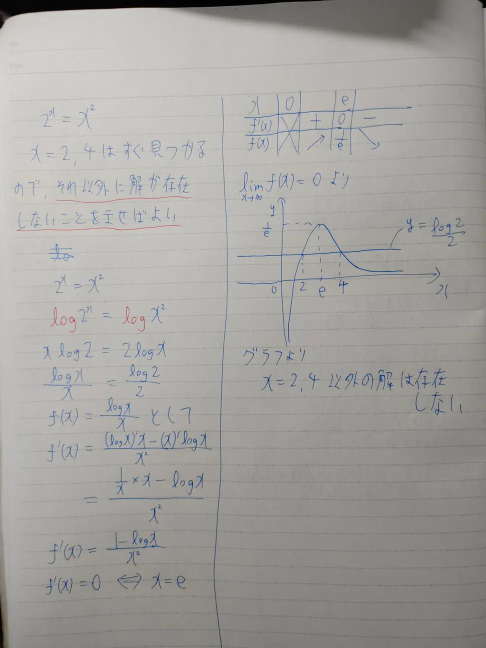 2^x = x^2
x = 2, 4 はすぐ見つかる
ので、それ以外に解が存在
しないことを示せばよい
2^x = x^2
log2^x = logx^2
x log2 = 2logx
logx/x = log2/2
f(x) = logx/x として
f'(x) = ((logx)'x - (x)'logx)/x^2
= (1/x × x - logx)/x^2
f'(x) = (1-logx)/x^2
f'(x) = 0 ⇔ x = e
x 0 e
f'(x) + 0 -
f(x) ↗ 1/e ↘
lim x→∞ f(x) = 0 より
y
1/e
y = log2/2
0 2 e 4 x
グラフより
x = 2, 4 以外の解は存在
しない